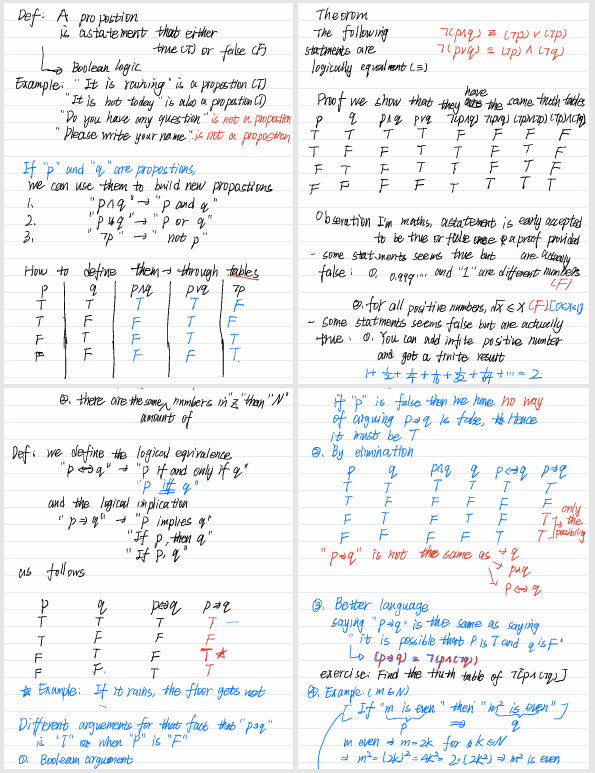 Def: A propostion
is a statement that either
true(T) or false (F)
Boolean logic
Example: "It is raining" is a propostion(T)
"It is hot today" is also a propostion(T)
"Do you have any question" is not a propostion
"Please write your name" is not a propostion
If "p" and "q" are propostions,
we can use them to build new propostions
1. "p∧q" → "p and q"
2. "p∨q" → "p or q"
3. "¬p" → "not p"
How to define them → through tables
p q p∧q p∨q ¬p
T T T T F
T F F T F
F T F T T
F F F F T
Theorom
The following ¬(p∧q) ≡ (¬p)∨(¬p)
statments are ¬(p∨q) ≡ (¬p)∧(¬q)
logically equivalment (≡)
Proof we show that they have the same truth tables
p q p∧q p∨q ¬(p∧q) ¬(p∨q) (¬p)∨(¬p) (¬p)∧(¬q)
T T T T F F F F
T F F T T F T F
F T F T T F T F
F F F F T T T T
Obseration In maths, a statement is early accepted
to be true or false once a proof provided
- some statments seems true but are actually
false: ①. 0.999... and "1" are different numbers
(F)
②. for all positive numbers, √x ≤ x (F)
- some statments seems false but are actually
true: ①. You can add infite positive number
and got a finite result
1+ 1/2 + 1/4 + 1/16 + 1/32 + 1/64 + ... = 2
②. there are the same numbers in "Z" than "N"
amount of
Def: we define the logical equivalence
"p⇔q" → "p if and only if q"
"p iff q"
and the logical implication
"p⇒q" → "p implies q"
"If p, then q"
"If p, q"
as follows
p q p⇔q p⇒q
T T T T
T F F F
F T F T*
F F T T
* Example: If it rains, the floor gets wet
Different arguements for that fact that "p⇒q"
is "T" when "p" is "F"
①. Boolean argument
if "p" is false then we have no way
of arguing p⇒q is false, Hence
it must be T
②. By elimination
p q p∧q q p⇔q p⇒q
T T T T T T
T F F F F F
F T F T F T only
F F F F T T the possibility
"p⇒q" is not the same as → q
→ p∧q
→ p⇔q
③. Better language
saying "p⇒q" is the same as saying
"it is possible that P is T and q is F"
→ (p⇒q) = ¬(p∧(¬q))
exercise: Find the truth table of ¬[p∧(¬q)]
④. Example: (m∈N)
[If "m is even" then "m² is even"]
p ⇒ q
m even ⇒ m=2k for k∈N
⇒ m² = (2k)² = 4k² = 2·(2k²) ⇒ m² is even